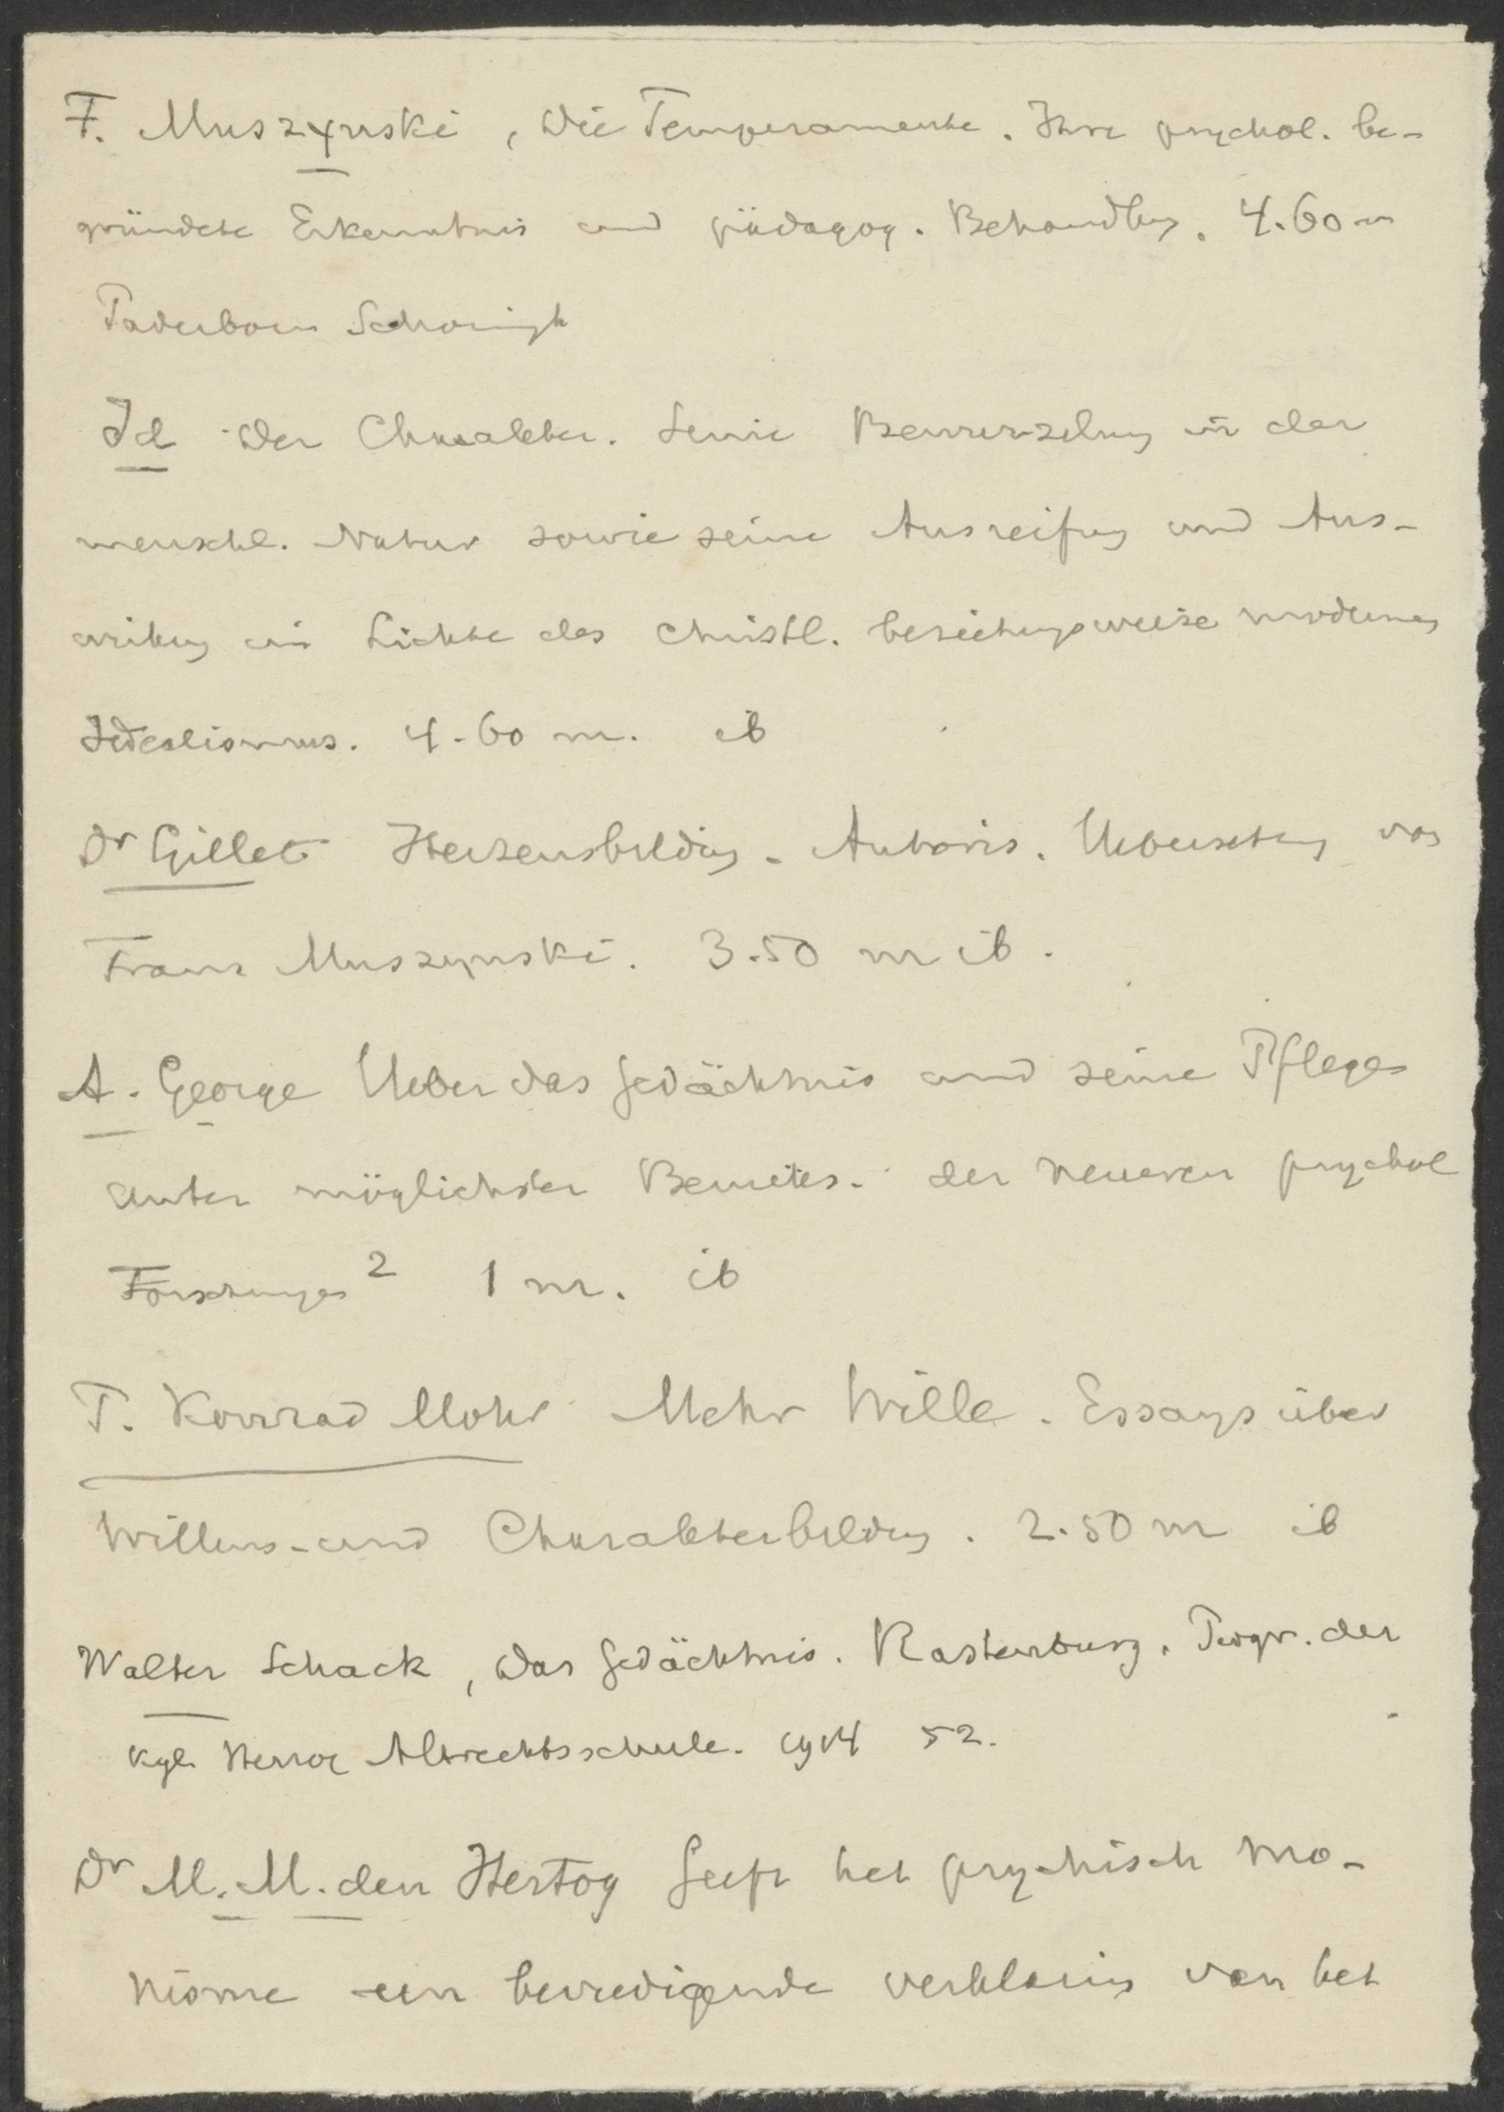 F. Muszynski, Die Temperamente. Ihre psychol. be-
gründete Erkenntnis und pädagog. Behandlung. 4.60 m
Paderborn Schöningh
Id Der Charakter. Seine Bewurzelung in der
menschl. Natur sowie seine Ausreifung und Aus-
wirkung im Lichte des christl. beziehungsweise modernen
Idealismus. 4.60 m. ib
Dr Gillet Herzensbildung - Autoris. Uebersetzung von
Franz Muszynski. 3.50 m ib.
A. George Ueber das Gedächtnis und seine Pflege
unter möglichster der neueren psychol
Forschungen 2 1 m. ib
T. Konrad Mohr Mehr Wille. Essays über
Willens- und Charakterbildung. 2.50 m ib
Walter Schack, Das Gedächtnis. Rastenburg. Progr. der
Kgl. Herzog Albrechtsschule. 1914 52.
Dr M. M. den Hertog Geeft het psychisch mo-
nisme een bevredigende verklaring van het